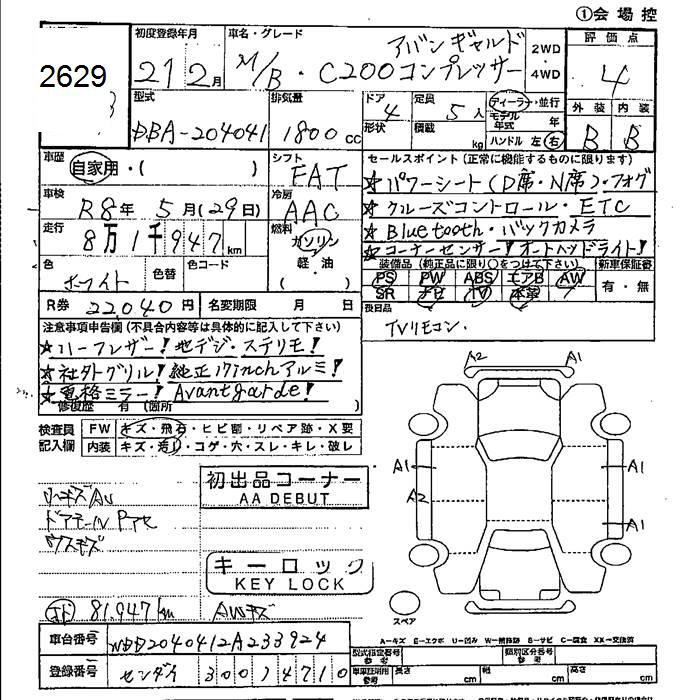 ①会場控
2629
初度登録年月
21 2月
車名・グレード
アバンギャルド
M/B・C200コンプレッサー
2WD
4WD
評価点
4
型式
DBA-204041
排気量
1800cc
ドア
4
形状
定員
5人
積載
kg
ディーラー・並行
モデル年式
年
ハンドル 左・右
外装 内装
B B
車歴
自家用・( )
シフト
FAT
セールスポイント(正常に機能するものに限ります)
☆パワーシート(D席・N席)・フォグ
☆クルーズコントロール・ETC
☆Bluetooth・バックカメラ
☆コーナーセンサー!オートヘッドライト!
車検
R8年 5月(29日)
冷房
AAC
走行
8万1千947km
燃料
ガソリン
軽・油
( )
色
ホワイト
色替
色コード
装備品(純正品に限り○をつけて下さい)
新車保証書
PS PW ABS エアB AW
SR ナビ TV 本革
有・無
R券 22040円
名変期限 月 日
後日品
TVリモコン.
注意事項申告欄(不具合内容等は具体的に記入して下さい)
☆ハーフレザー!地デジ・ステリモ!
☆社外グリル!純正17inchアルミ!
☆電格ミラー!Avantgarde!
修復歴 有(箇所 )
検査員記入欄
FW キズ・飛石・ヒビ割・リペア跡・X要
内装 キズ・汚れ・コゲ・穴・スレ・キレ・破レ
初出品コーナー
AA DEBUT
キーロック
KEY LOCK
ウスキズ
81,947km
AWキズ
A2 A1
A1 A1
A2
A1
スペア
A-キズ E-エクボ U-凹み W-補修跡 S-サビ C-腐食 XX-交換済
車台番号 WDD2040412A233924
登録番号 センダイ 300 4710
型式指定番号
参考
類別区分番号
参考
車車証明用
参考
長さ cm
幅 cm
高さ cm